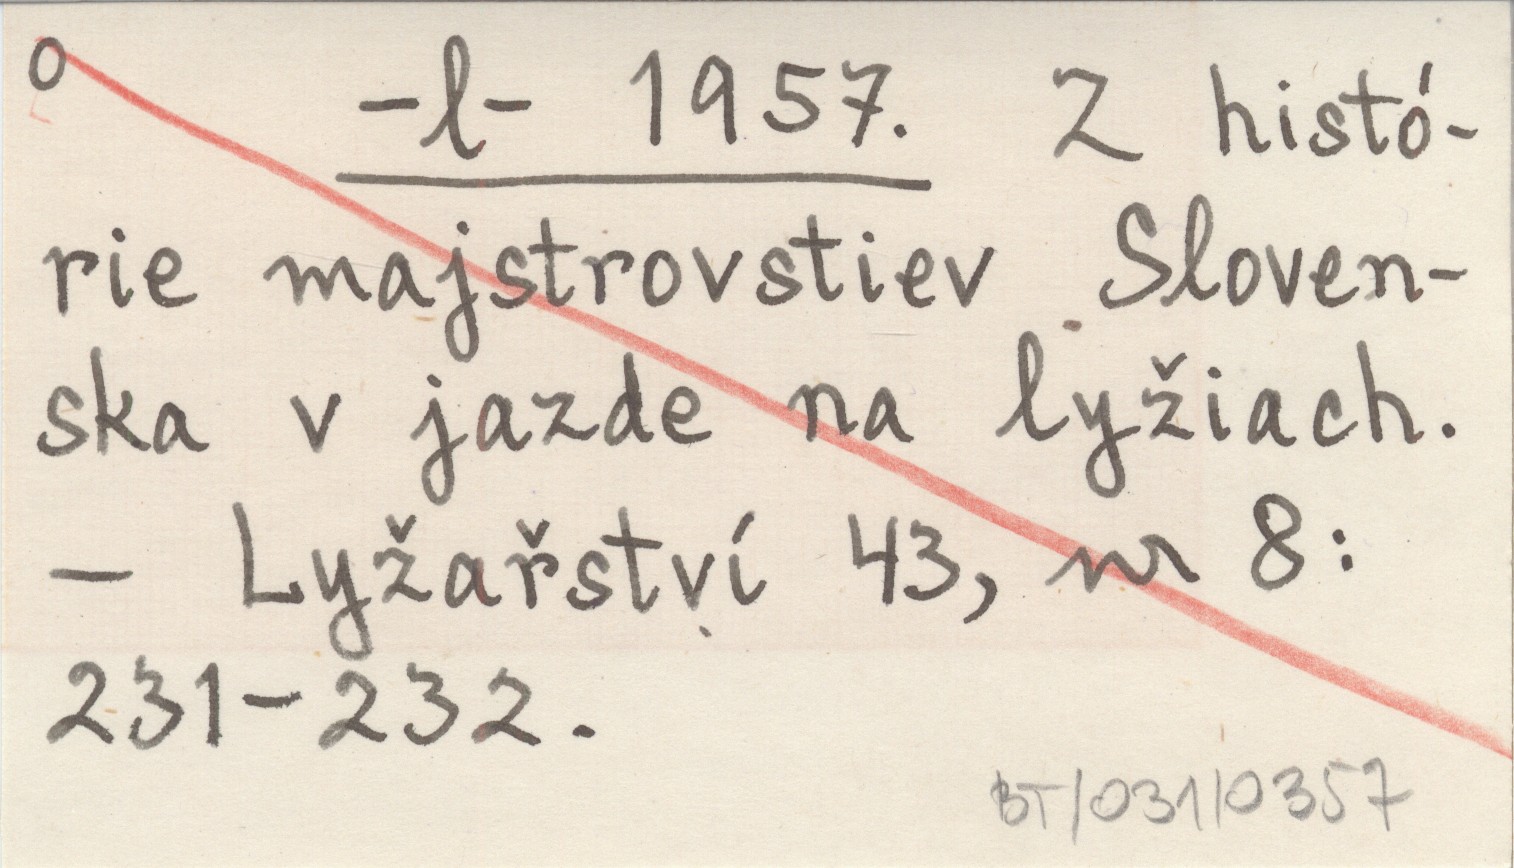 o -l- 1957. Z histó-
rie majstrovstiev Sloven-
ska v jazde na lyžiach.
- Lyžařství 43, nr 8:
231-232.
BT/031/0357